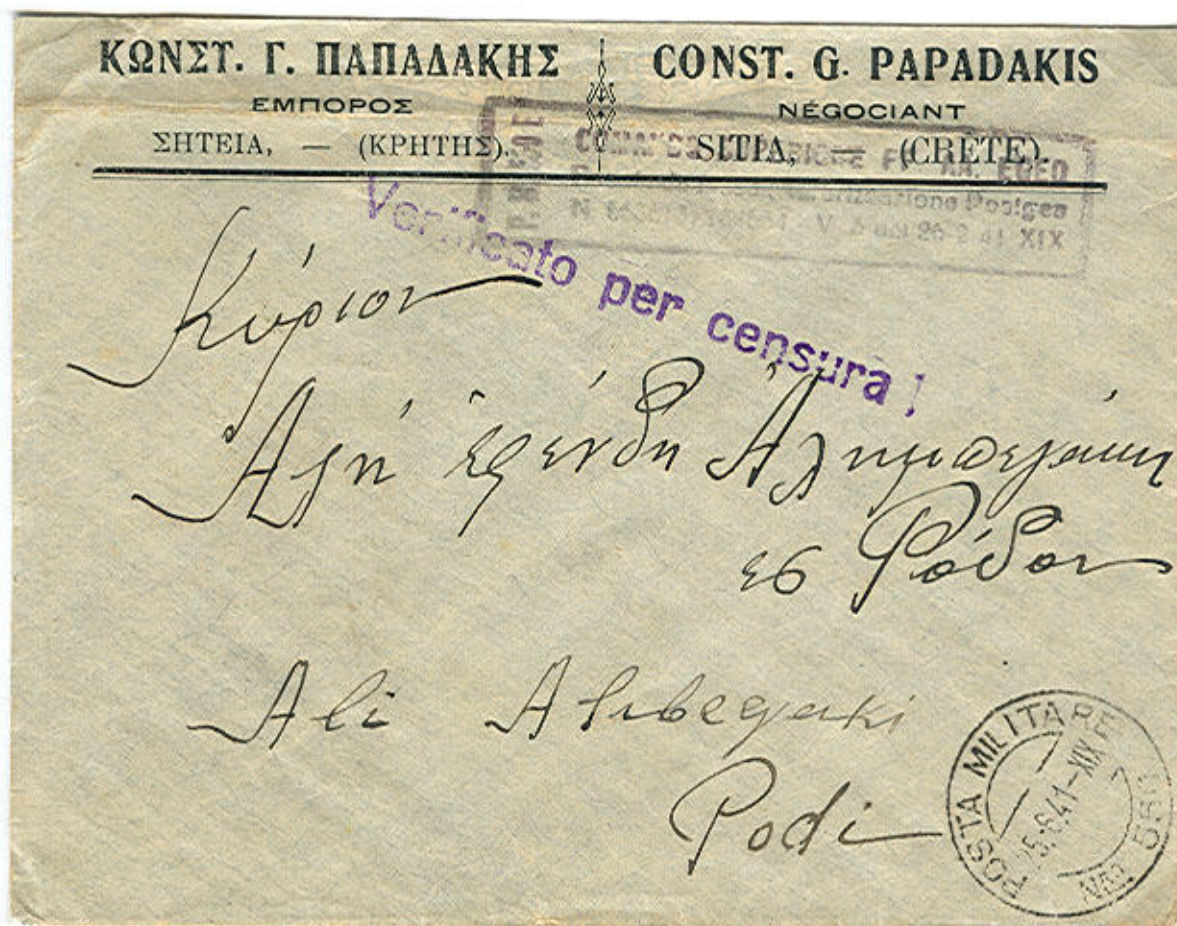 ΚΩΝΣΤ. Γ. ΠΑΠΑΔΑΚΗΣ
ΕΜΠΟΡΟΣ
ΣΗΤΕΙΑ, — (ΚΡΗΤΗΣ).
CONST. G. PAPADAKIS
NÉGOCIANT
SITIA, — (CRÈTE).
COMANDO SUPERIORE FF. AA. EGEO
41 XIX
Verificato per censura !
Κύριον
Αλή εφένδη Αλημπεγάκη
εις Ρόδον
Ali Alibegaki
Rodi
POSTA MILITARE
25.6.41-XIX